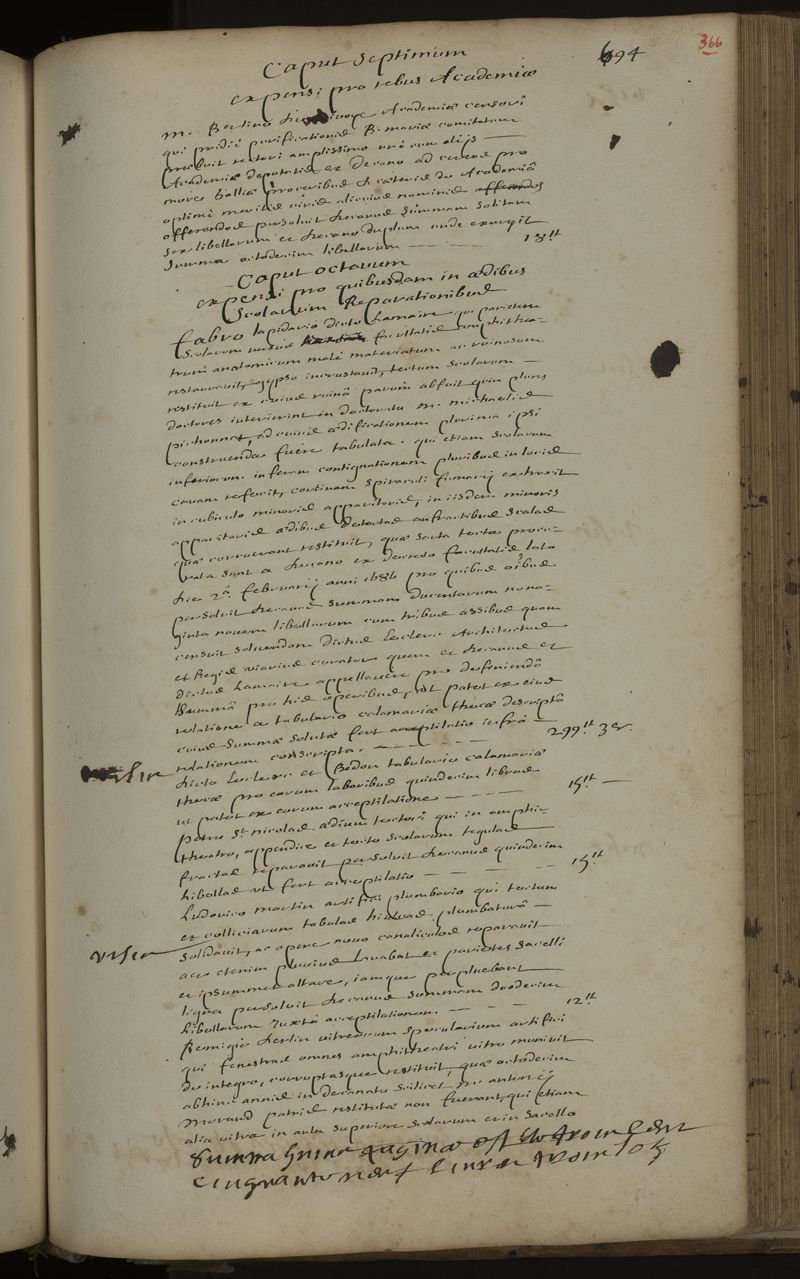 694
366
Caput Septimum
expensi pro rebus Academiæ
M. Bertino Academiæ censori
qui pridie purificationis B. Mariæ comitatum
præbuit rectori amplissimo unà cum aliis
Academiæ deputatis et Decano ad cereos pro
more Galliæ proceribus & cæteris de Academiâ
optime meritis civis nomine offerendos
offerendos persoluit Decanus summam solitam
sex libellarum et Decano duplum unde exurgit
summa octodecim libellarum 18tt
Caput octavum
expensi pro quibusdam in ædibus
Scolarum Reparationibus
Fabro lapidario dicto Lamaire qui parietem
Scolarum facultatis amphithea-
trum anatomicum malè materiatum ac ruinosum
restauravit, gypso incrustavit, tectum Scolarum
restituit ex cuius ruinâ parum abfuit quin plures
doctores interierint in doctoratu M. Michaelis
pichonnat, ad cuius ædificationem plurima ipsi
construenda fuere tabulata. qui etiam scolarum
inferiorum inferam contignationem pluribus in locis
cavam refecit, cortinam spiraculi fumarii extruxit
in cubiculo minoris apparitoris, in iisdem minoris
apparitoris ædibus detortas anfractibus scalas
quæ corruerant restituit, quæ sarta tecta procu-
rata sunt a Decano ex decreto facultatis lato
die 2a. februarii anni 1686 pro quibus oibus
persoluit Decanus summam ducentarum nona-
ginta novem libellarum cum tribus assibus quam
censuit solvendam dictus Leclerc Architectus
et Regis viarius curator quem et Decanus et
dictus Lamaire appellavere pro definiendâ
summâ pro his operibus, ut patet ex eius
relatione a tabulario calamariæ thecæ descriptâ
cuius summæ solutæ fert acceptilatio infrà
relationem conscripta. 299tt 3s.
Dicto Leclerc et Bedon tabulario calamariæ
thecæ pro eorum laboribus quindecim libras
ut patet ex eorum acceptilatione 15tt
Petro St nicolas ædium tectori qui in amphi-
theatro, appendice et tecto Scolarum tegulas
fractas reparavit persoluit Decanus quindecim
libellas ut fert acceptilatio 15tt
Ludovico Martin artifici plumbario qui tectum
et colliciarum tabulas hiulcas plumbaturâ
solidavit, ac opere novo canaliculos reparavit
acris etenim pluvius lavabat et parietes Sacelli
et ipsummet altare, iamque perpluebant
ligna persoluit Decanus summam duodecim
libellarum Juxtà acceptilationem. 12tt
Remigio Herlin vitreorum specularium artifici
qui fenestras omnes amphitheatri vitro munivit
de integro, corruptasque restituit, quæ octodecim
abhinc annis in decanatu scilicet M. antonii
Morand patris restitutæ non fuerant, qui etiam
alia vitra in aula superiore scolarum et in sacello
Summa huius paginæ est de trois cens
cinquante neuf livres trois sols